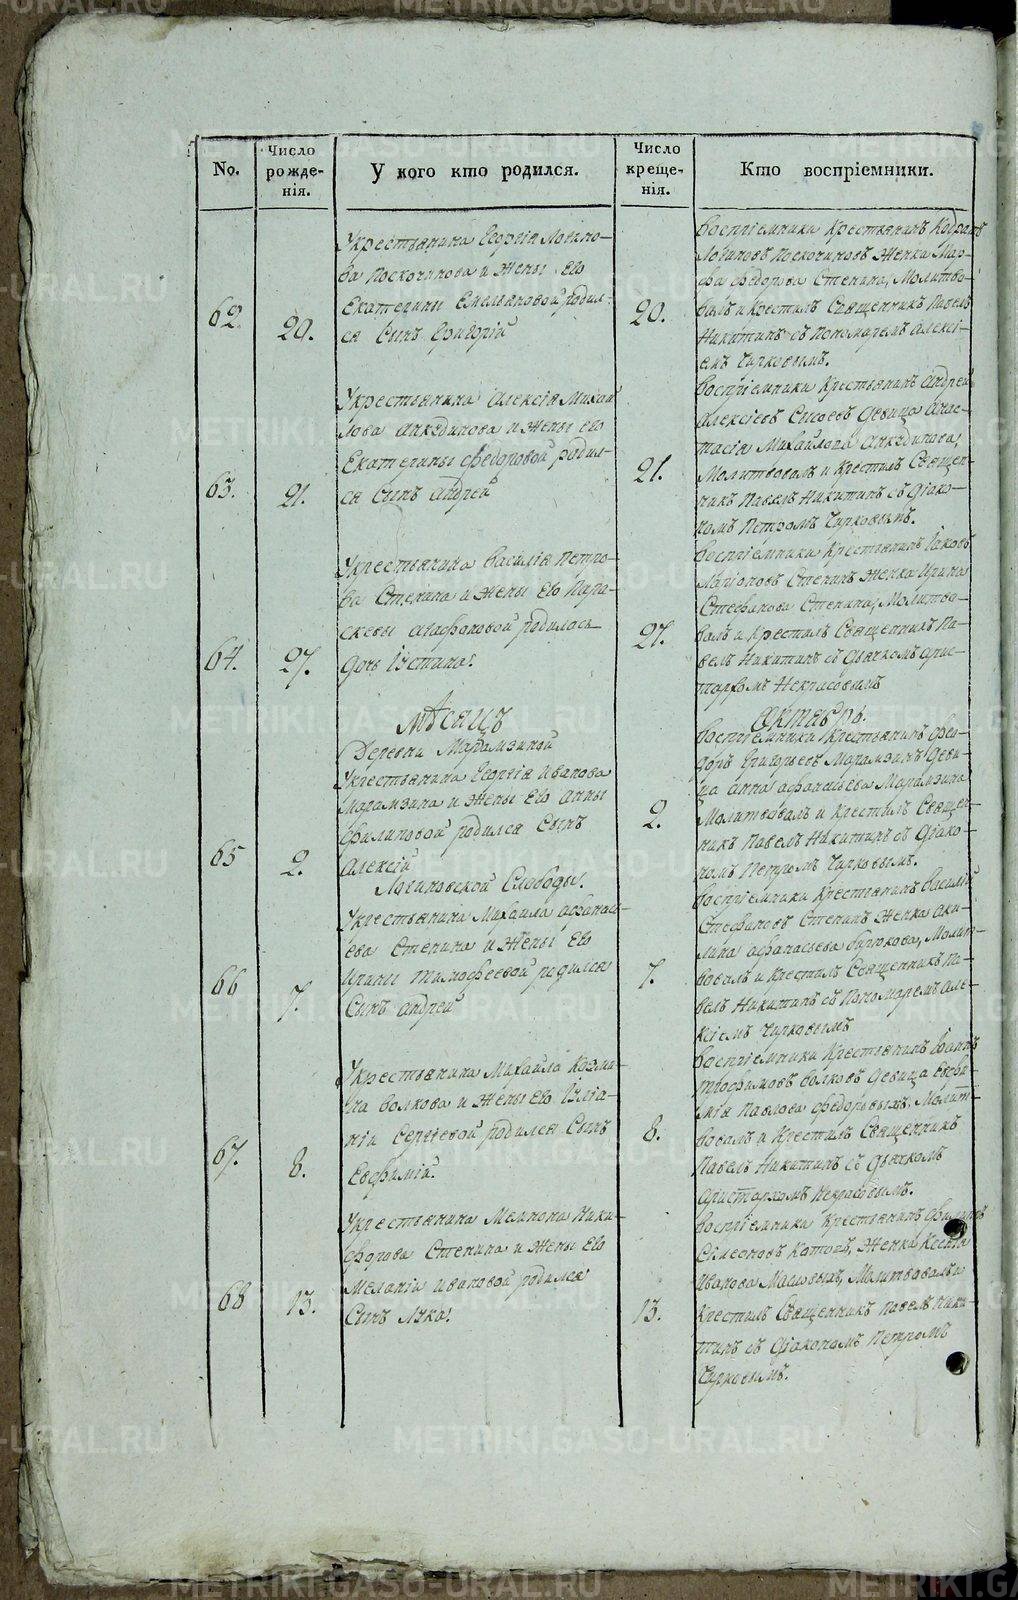 No.
Число рожденія.
У кого кто родился.
Число крещенія.
Кто воспріемники.
62.
20.
Укрестьянина Георгія Логино-
ва Поскочинова и жены Его
Екатерины Емельяновой родил-
ся Сынъ Григорій
20.
Воспріемники Крестьянинъ
Логиновъ Поскочиновъ Женка Мар-
фа Федорова Степина, Молитво-
валъ и Крестилъ Священникъ Павелъ
Никитинъ съ Пономаремъ Алексі-
емъ Чирковымъ.
63.
21.
Укрестьянина Алексія Михай
лова и жены его
Екатерины Федоровой родил-
ся Сынъ Андрей
21.
Воспріемники Крестьянинъ Андрей
Алексіевъ Сысоевъ Девица Анас-
тасія Михайлова
Молитвовалъ и Крестилъ Священ-
никъ Павелъ Никитинъ съ Діако-
номъ Петромъ Чирковымъ.
64.
27.
Укрестьянина Василія Петро-
ва Степина и жены Его Пара-
скевы Агафоновой родилась
Дочь Іустина.
27.
Воспріемники Крестьянинъ Іаковъ
Степинъ Женка Ирина
Стефанова Степина, Молитво-
валъ и Крестилъ Священникъ Па-
велъ Никитинъ съ Дьячкомъ Арис-
тархомъ Некрасовымъ
Мѣсяцъ
Октябрь.
Деревни Марамзиной
65
2.
Укрестьянина Георгія Иванова
Марамзина и жены Его Анны
Филиповой родился Сынъ
Алексій
2.
Воспріемники Крестьянинъ Фео-
доръ Григорьевъ Марамзинъ Деви-
ца Анна Афанасьева Марамзина
Молитвовалъ и Крестилъ Священ-
никъ Павелъ Никитинъ съ Діако-
номъ Петромъ Чирковымъ.
Логиновской Слободы.
66
7.
Укрестьянина Михаила Афанась-
ева Степина и Жены Его
Ирины Тимофеевой родился
Сынъ Андрей
7.
Воспріемники Крестьянинъ Василій
Стефановъ Степинъ Женка Аки-
лина Афанасьева Бирюкова, Молит-
вовалъ и Крестилъ Священникъ Па-
велъ Никитинъ съ Пономаремъ Але-
ксіемъ Чирковымъ
67.
8.
Укрестьянина Михайла Козми-
на Волкова и Жены Его Іуліа-
ніи Сергіевой родился Сынъ
Евфимій.
8.
Воспріемники Крестьянинъ Іоаннъ
Трофимовъ Волковъ Девица Евфи-
мія Павлова Федоровыхъ, Молит-
вовалъ и Крестилъ Священникъ
Павелъ Никитинъ съ Дьячкомъ
Аристархомъ Некрасовымъ.
68
13.
Укрестьянина Мелнона Ники-
форова Степина и Жены Его
Меланіи Ивановой родился
Сынъ Лука.
13.
Воспріемники Крестьянинъ
Симеоновъ Котовъ, Женка Ксенія
Иванова Масловыхъ, Молитвовалъ и
Крестилъ Священникъ Павелъ Ники-
тинъ съ Діакономъ Петромъ
Чирковымъ.
METRIKI.GASO-URAL.RU